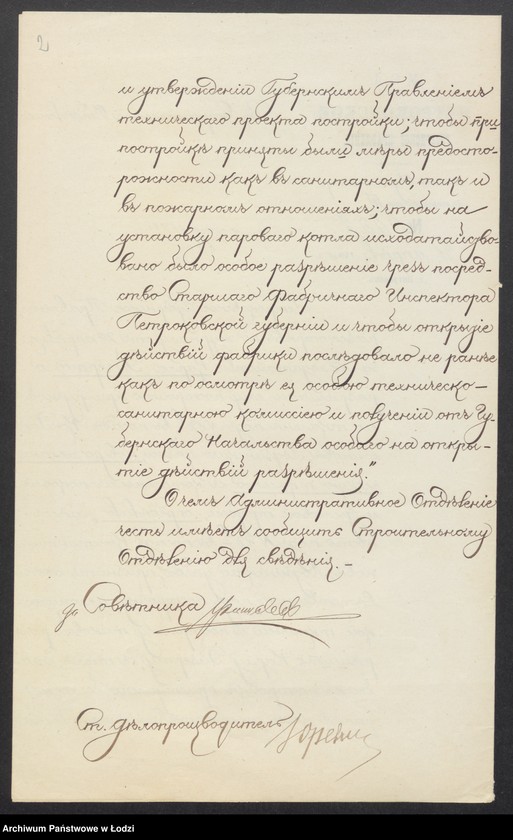 2
и утвержденіи Губернскимъ Правленіемъ
техническаго проекта постройки; чтобы при
постройкѣ приняты были мѣры предосто-
рожности какъ въ санитарномъ, такъ и
въ пожарномъ отношеніяхъ; чтобы на
установку пароваго котла исходатайство-
вано было особое разрѣшеніе чрезъ посред-
ство Старшаго Фабричнаго Инспектора
Петроковской губерніи и чтобы открытіе
дѣйствій фабрики послѣдовало не ранѣе
какъ по осмотрѣ ея особою техническо-
санитарною коммиссіею и полученіи отъ Гу-
бернскаго Начальства особаго на откры-
тіе дѣйствій разрѣшенія."
О чемъ Административное Отдѣленіе
честь имѣетъ сообщить Строительному
Отдѣленію для свѣдѣнія.-
за Совѣтника
Ст. Дѣлопроизводитель
Archiwum Państwowe w Łodzi